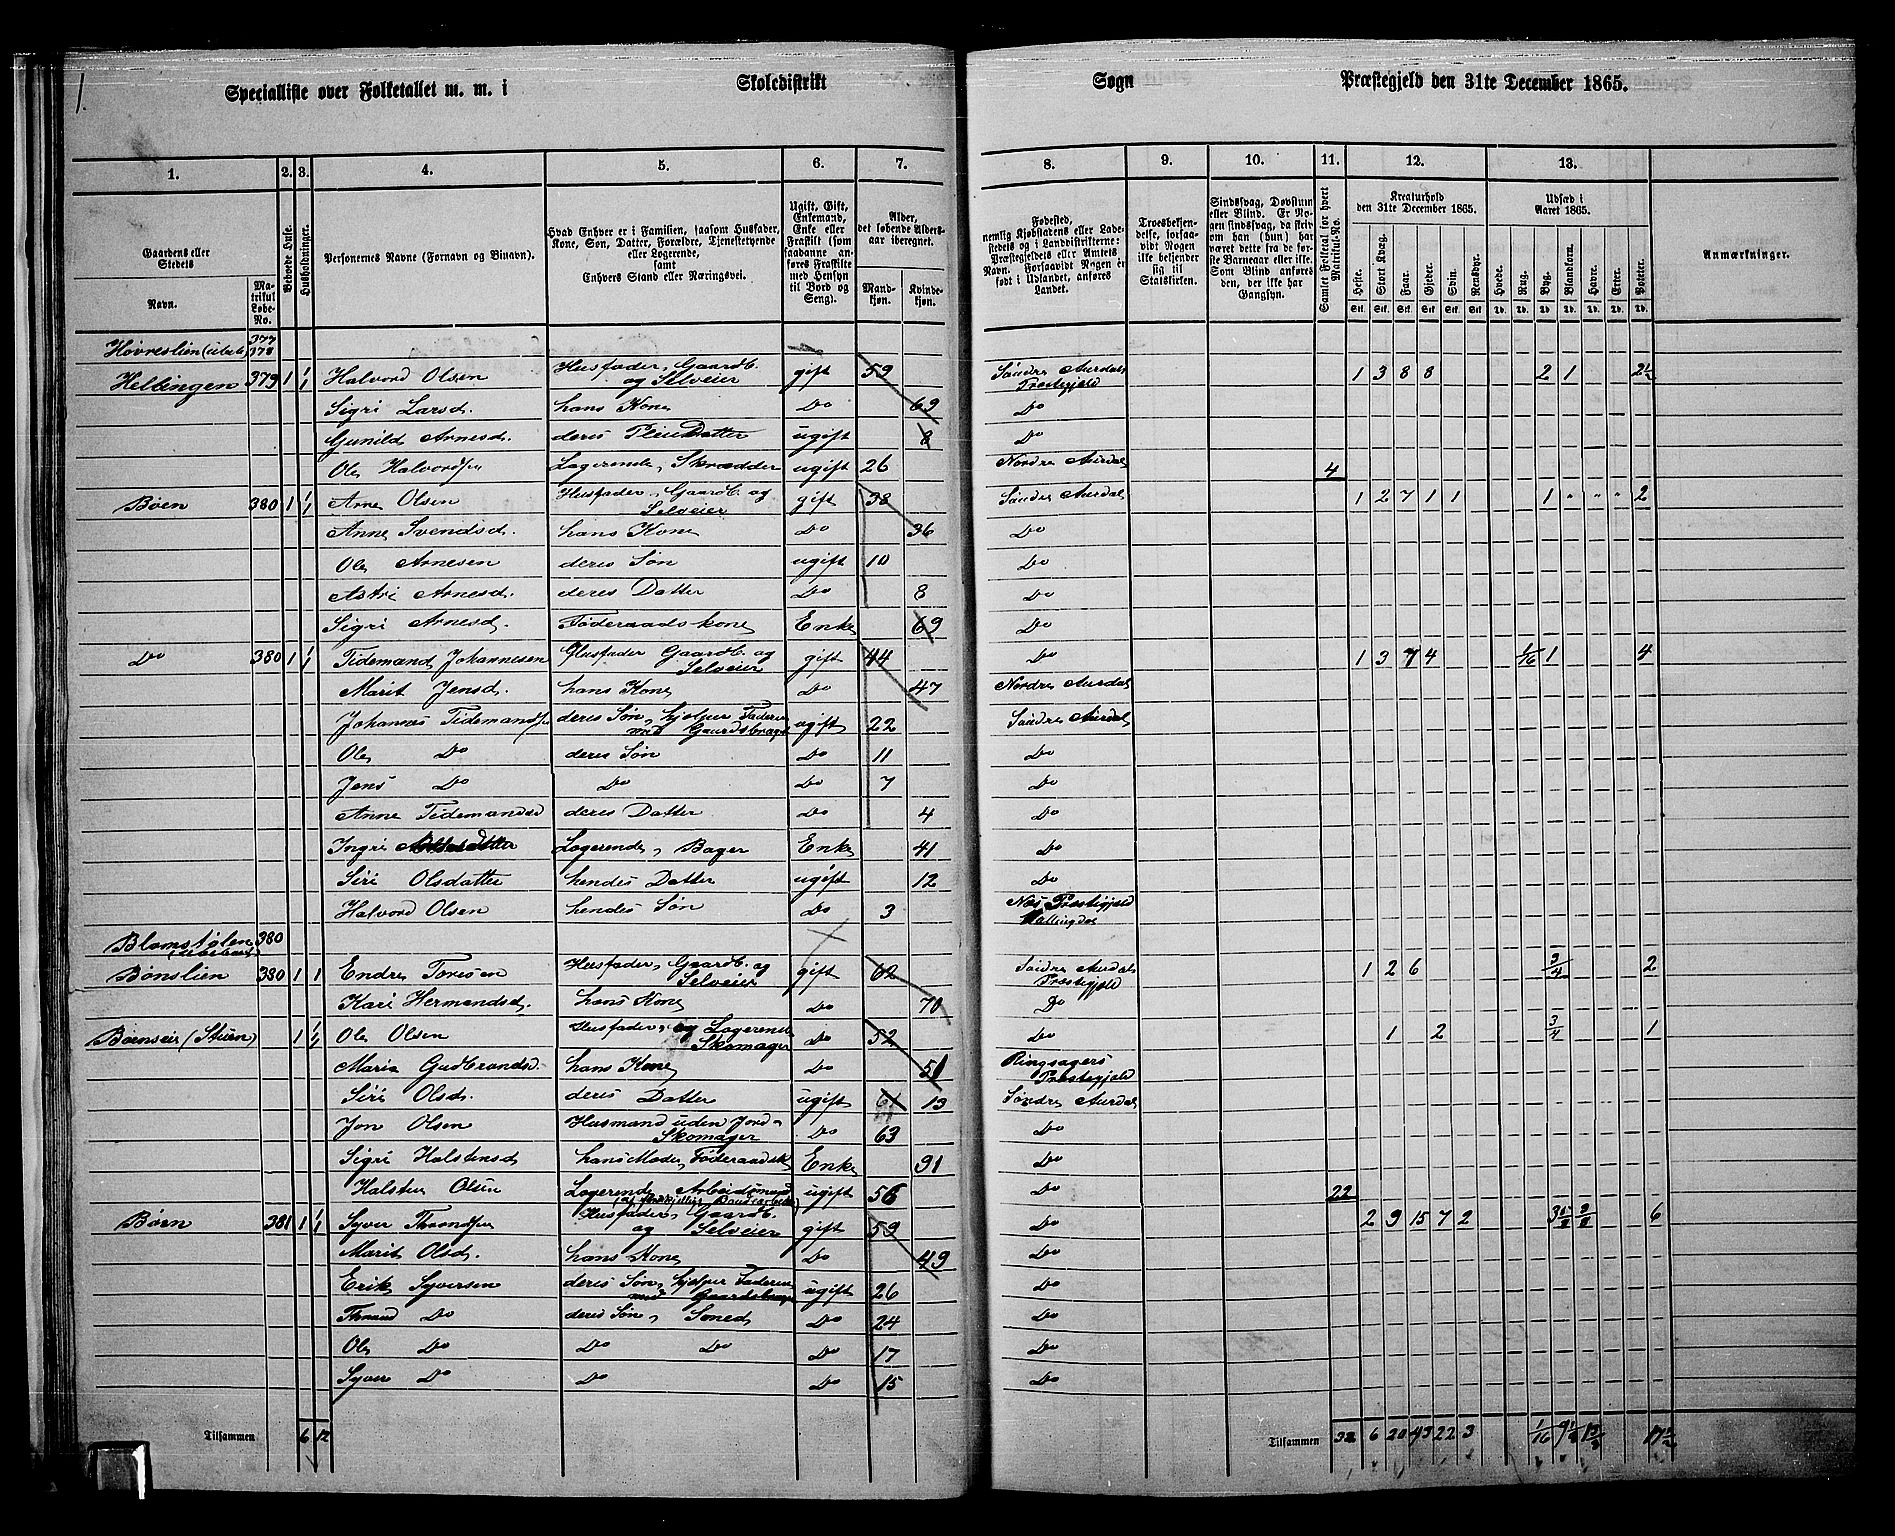 1.
Specialliste over Folketallet m. m. i Skoledistrikt Sogn Præstegjeld den 31te December 1865.
1. 2. 3. 4. 5. 6. 7. 8. 9. 10. 11. 12. 13.
Gaardens eller Stedets
Navn.
Matrikul Løbe-No.
Beboede Huse.
Husholdninger.
Personernes Navne (Fornavn og Binavn).
Hvad Enhver er i Familien, saasom Husfader, Kone, Søn, Datter, Forældre, Tjenestetyende eller Logerende, samt Enhvers Stand eller Næringsvei.
Ugift, Gift, Enkemand, Enke eller Fraskilt (som saadanne anføres Fraskilte med Hensyn til Bord og Seng).
Alder, det løbende Alders-aar iberegnet.
Mand-kjøn.
Kvinde-kjøn.
Fødested, nemlig Kjøbstadens eller Ladestedets og i Landdistrikterne: Præstegjeldets eller Amtets Navn. Forsaavidt Nogen er født i Udlandet, anføres Landet.
Troesbekjendelse, forsaavidt Nogen ikke bekjender sig til Statskirken.
Sindssvag, Døvstum eller Blind. Er Nogen sindssvag, da skrives om han (hun) har været dette fra de første Barneaar eller ikke. Som Blind anføres den, der ikke har Gangsyn.
Samlet Folketal for hvert Matrikul-No.
Kreaturhold den 31te December 1865.
Heste. Stort Kvæg. Faar. Gjeder. Svin. Rensdyr.
Udsæd i Aaret 1865.
Hvede. Rug. Byg. Blandkorn. Havre. Erter. Poteter.
Anmærkninger.
Stk. Stk. Stk. Stk. Stk. Stk. Td. Td. Td. Td. Td. Td. Td.
Hovreslien (ubeb) 377 378
Hellingen 379 1 1/1 Halvord Olsen Husfader, Gaardb. og Selveier gift 59 Søndre Aurdals Præstegjeld 1 3 8 8 2 1 2½
Sigri Larsd. hans Kone Do 69 Do
Gunild Arnesd. deres Pleiedatter ugift 8 Do
Ole Halvordsen Logerende, Skrædder ugift 26 Nordre Aurdal 4
Bøen 380 1 1/1 Arne Olsen Husfader, Gaardb. og Selveier gift 38 Søndre Aurdal 1 2 7 1 1 1 " " " 2
Anne Svendsd. hans Kone Do 36 Do
Ole Arnesen deres Søn ugift 10 Do
Astri Arnesd. deres Datter Do 8 Do
Sigri Arnesd. Føderaadskone Enke 69 Do
Do 380 1 1/1 Tidemand Johannesen Husfader Gaardb. og Selveier gift 44 Do 1 3 7 4 1/16 1 4
Marit Jensd. hans Kone Do 47 Nordre Aurdal
Johannes Tidemandsen deres Søn, hjelper Faderen med Gaardsbruget ugift 22 Søndre Aurdal
Ole Do deres Søn Do 11 Do
Jens Do Do Do 7 Do
Anne Tidemandsd deres Datter Do 4 Do
Ingri Logerende, Bager Enke 41 Do
Siri Olsdatter hendes Datter ugift 12 Do
Halvord Olsen hendes Søn Do 3 Næs Præstegjeld Hallingdal
Blomstølen (ubeboet) 380
Bønslien 380 1 1 Endre Toresen Husfader, Gaardb. og Selveier gift 62 Søndre Aurdals Præstegjeld 1 2 6 3/4 2
Kari Hermandsd. hans Kone Do 70 Do
1 1/1 Ole Olsen Husfader, og Logerende Skomager Do 52 Do 1 2 3/4 1
Maria Gudbrandsd. hans Kone Do 51 Ringsagers Præstegjeld
Siri Olsd. deres Datter ugift 13 Søndre Aurdal
Jon Olsen Husmand uden Jord - Skomager Do 63 Do
Sigri Halstensd hans Moder, Føderaadsk Enke 91 Do
Halsten Olsen Logerende Arbeidsmand ugift 56 Do 22
Bøen 381 1 1/1 Syver Throndsen Husfader, Gaardb. og Selveier gift 59 Do 2 9 15 7 2 6
Marit Olsd. hans Kone Do 49 Do
Erik Syversen deres Søn, hjelper Faderen med Gaardsbruget ugift 26 Do
Thrond Do deres Søn, Smed Do 24 Do
Ole Do Do Do Do 17 Do
Syver Do Do Do 15 Do
Tilsammen 6 12 Tilsammen 32 6 20 43 22 3 1/16 9½